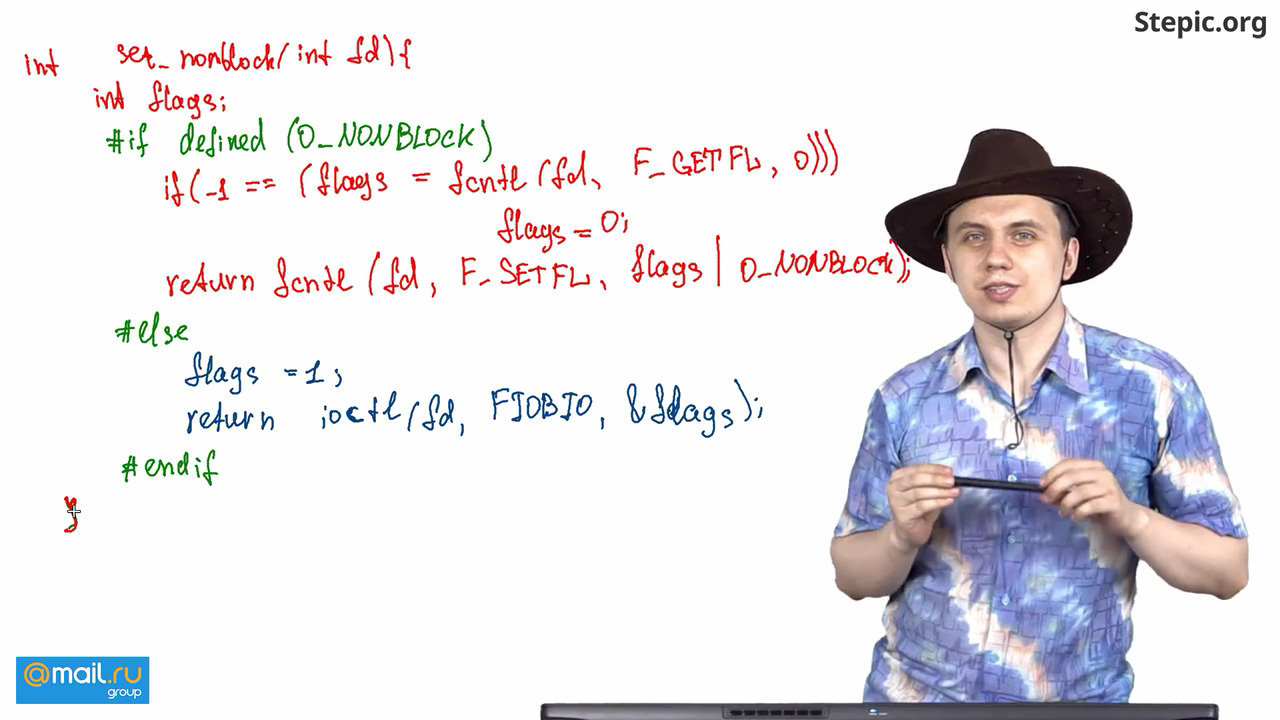 Stepic.org
int set_nonblock(int fd){
int flags;
#if defined (O_NONBLOCK)
if(-1 == (flags = fcntl(fd, F_GETFL, 0)))
flags = 0;
return fcntl(fd, F_SETFL, flags | O_NONBLOCK);
#else
flags = 1;
return ioctl(fd, FIOBIO, &flags);
#endif
}
@mail.ru
group